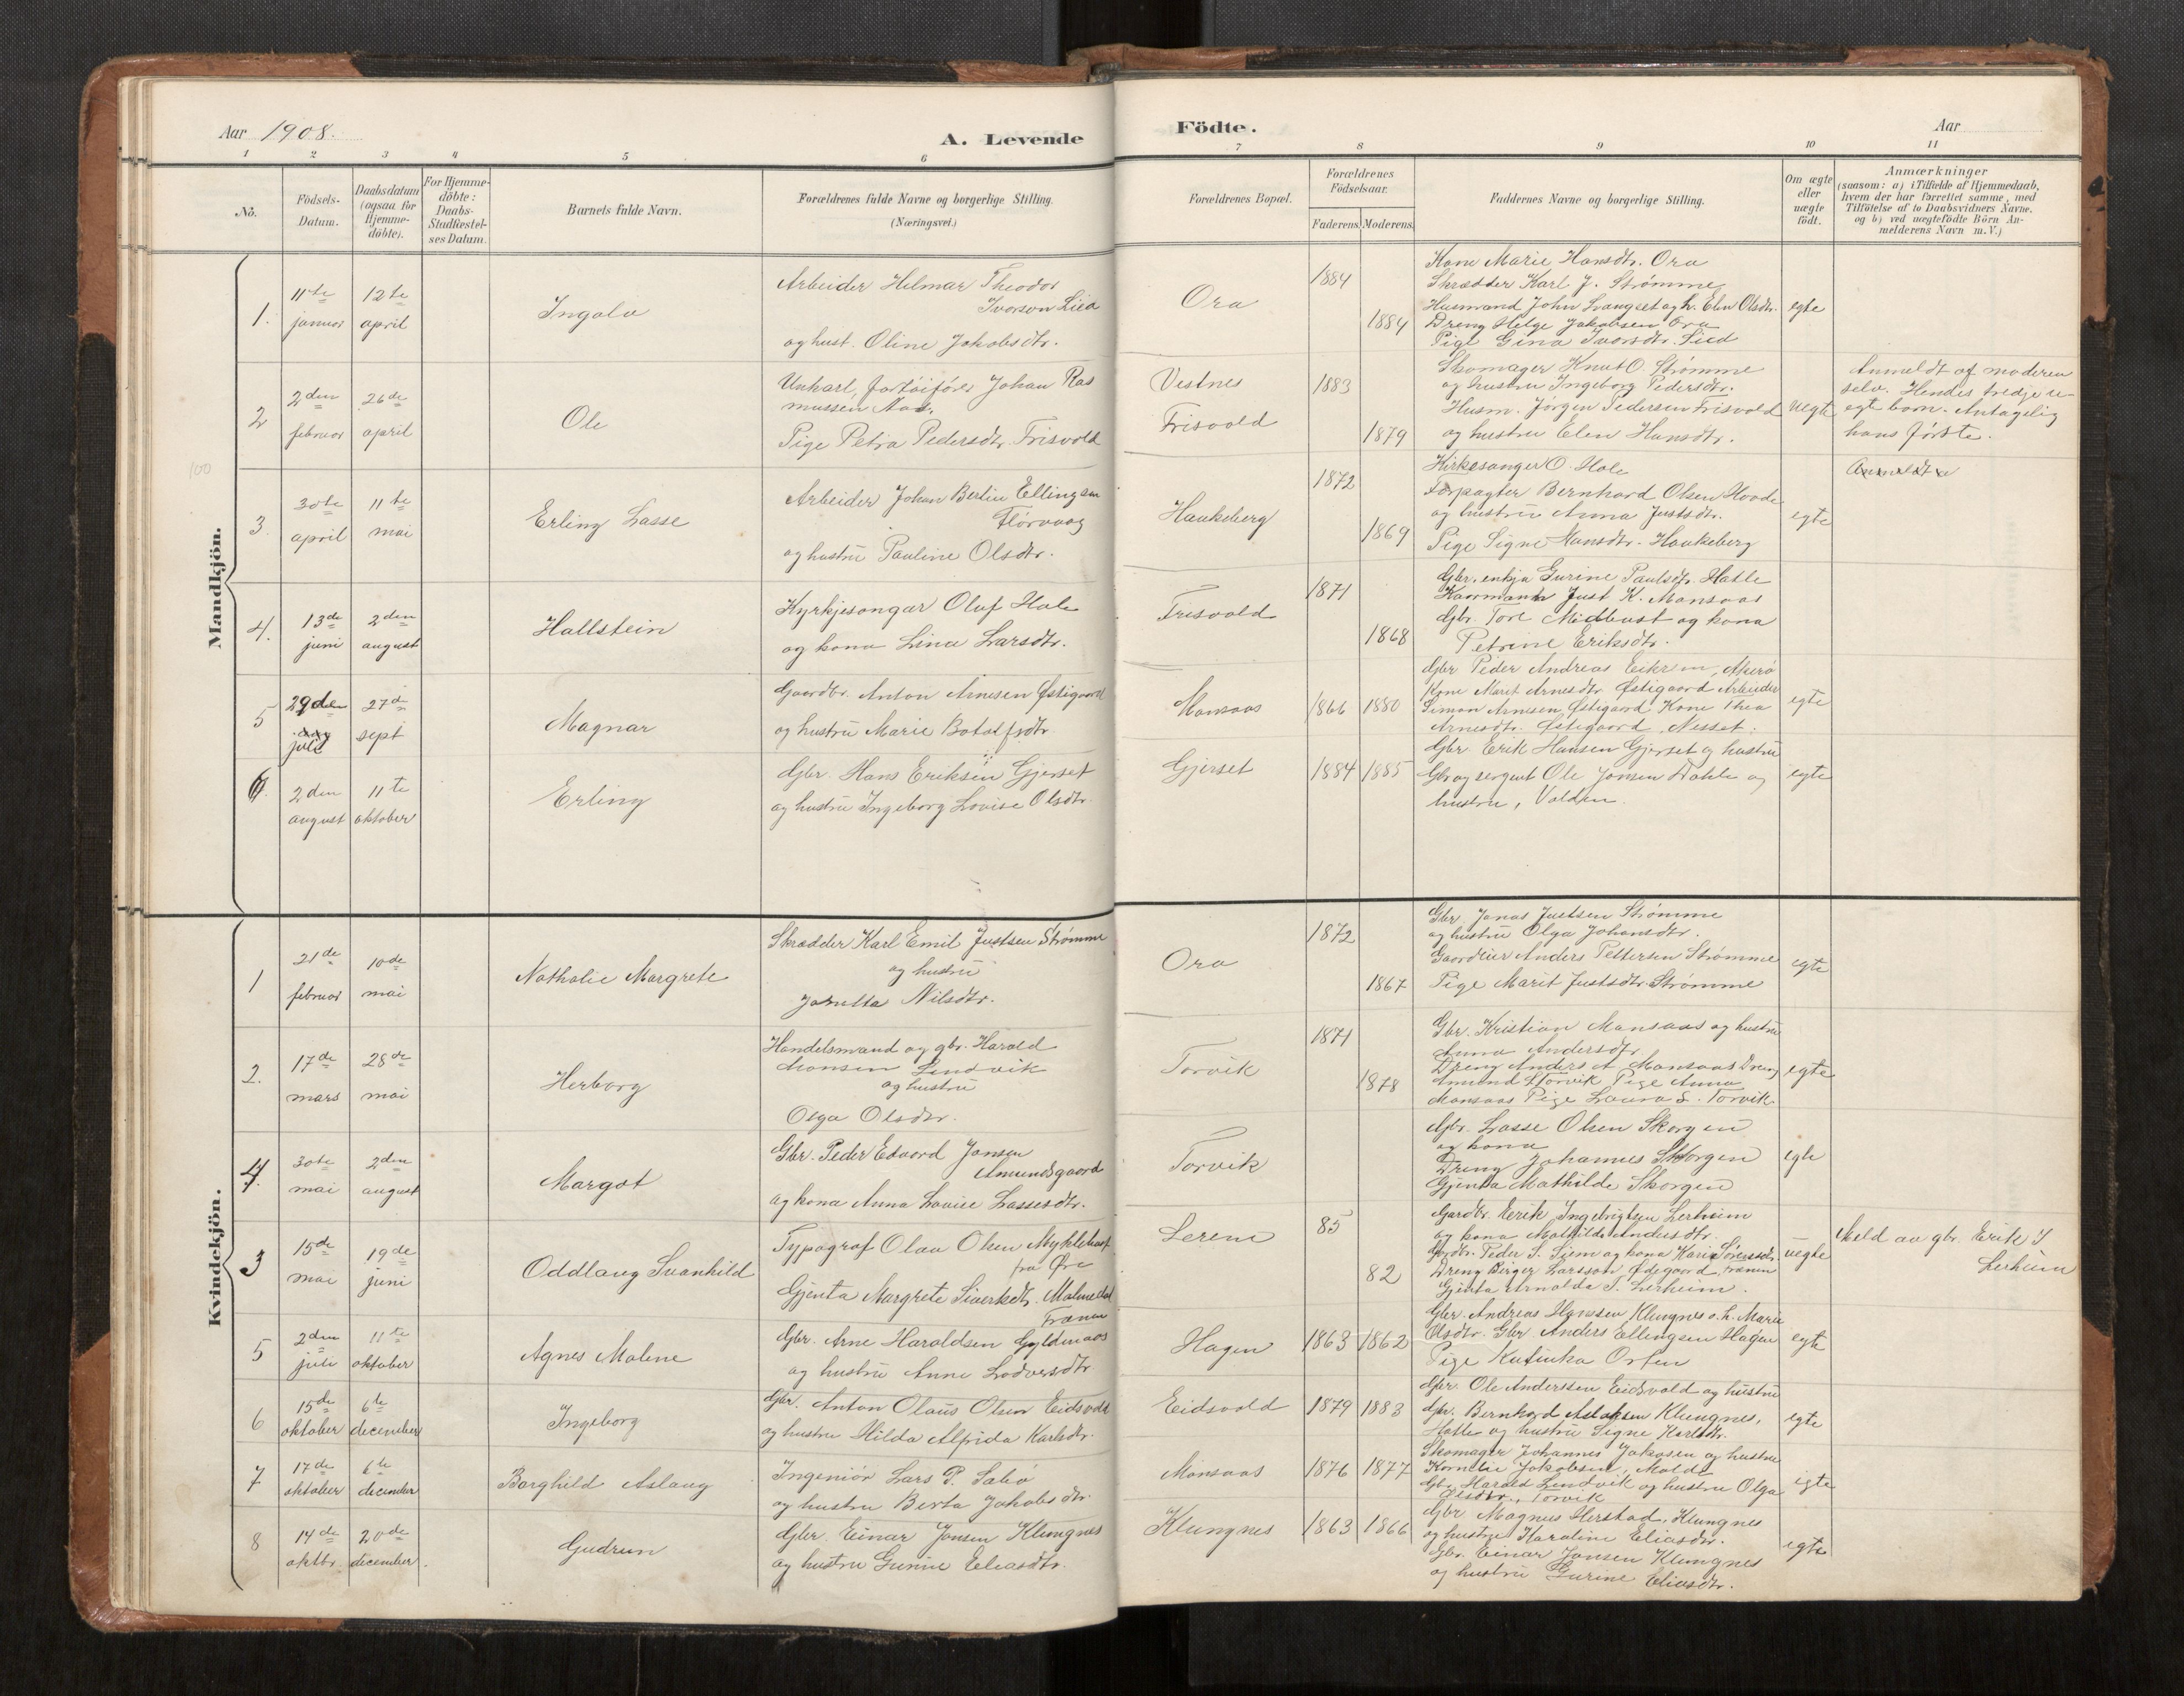 Aar 1908.
A. Levende
1 2 3 4 5 6
No.
Födsels-
Datum.
Daabsdatum
(ogsaa for
Hjemme-
döbte).
For Hjemme-
döbte:
Daabs-
Stadfæstel-
ses Datum.
Barnets fulde Navn.
Forældrenes fulde Navne og borgerlige Stilling.
(Næringsvei.)
Mandkjön.
1. 11te januar 12te april
Ingolv
Arbeider Hilmar Theodor
Ivorson Lied
og hust. Oline Jakobsdtr.
2 2den februar 26de april
Ole
Unkarl, fartøifører Johan Ras
mussen Aas.
Pige Petra Pedersdtr. Frisvold
100
3. 30te april 11te mai
Erling Lasse
Arbeider Johan Bertin Ellingsen
Flørvaag
og hustru Pauline Olsdtr.
4. 13de juni 2den august
Hallstein
Kyrkjesongar Oluf Hole
og kona Lina Larsdtr.
5 29den juli 27de sept
Magnar
Gaardbr. Anton Arnesen Østigaard
og hustru Marie Botolfsdtr.
6. 2den august 11te oktober
Erling
Gbr. Hans Eriksen Gjerset
og hustru Ingeborg Lovise Olsdtr.
Kvindekjön.
1 21de februar 10de mai
Nathalie Margrete
Skrædder Karl Emil Justsen Strømme
og hustru
Nilsdtr.
2. 17de mars 28de mai
Herborg
Handelsmand og gbr. Harald
Monsen Lindvik
og hustru
Olga Olsdtr.
4. 30te mai 2den august
Margot
Gbr. Peder Edvard Jonsen
Amundsgaard
og kona Anna Lovise Lassesdtr.
3 15de mai 19de juni
Oddlaug Svanhild
Typograf Olav Olsen Myklebust
fra Øre
Gjenta Margrete Sivertsdtr. Malmedal
Frænen
5 2den juli 11te oktober
Agnes Malene
Gbr. Arne Haraldsen Gyldenaas
og hustru Anne Lodversdtr
6 15de oktober 6te december
Ingeborg
Gbr. Anton Olaus Olsen Eidsvold
og hustru Hilda Alfrida Karlsdtr.
7 17de oktober 6te december
Borghild Aslaug
Ingeniør Lars P. Salsø
og hustru Berta Jakobsdtr.
8 14de oktbr. 20de december.
Gudrun
Gbr. Einar Jonsen Klungnes
og hustru Gurine Eliasdtr.
Födte.
Aar
7 8 9 10 11
Forældrenes Bopæl.
Forældrenes
Födselsaar.
Faderens. Moderens.
Faddernes Navne og borgerlige Stilling.
Om ægte
eller
uægte
födt.
Anmærkninger
(saasom: a) i Tilfælde af Hjemmedaab,
hvem der har forrettet samme, med
Tilföielse af to Daabsvidners Navne,
og b) ved uægtefödte Börn An-
melderens Navn m. V.)
Ora 1884 1884
Kone Marie Hansdtr. Ora
Skrædder Karl J. Strømme
Husmand John Langset og h. Elen Olsdtr.
Dreng Helge Jakobsen Ora
Pige Gina Ivorsdtr. Lied
egte
Vestnes
Frisvold
1883 1879
Skomager Knut O. Strømme
og hustru Ingeborg Pedersdtr.
Husm. Jørgen Pedersen Frisvold
og hustru Elen Hansdtr.
uegte
Anmeldt af moderen
selv. Hendes tredje u-
egte barn. Antagelig
hans første.
Haukeberg 1872 1869
Kirkesanger O. Hole
Forpagter Bernhard Olsen Hovde
og hustru Anna Justsdtr.
Pige Signe Hansdtr. Haukeberg
egte
Anmeldte
Frisvold 1871 1868
Gbr. enkja Gurine Paulsdtr. Hatle
Kaarmann Just K. Mansaas
Gbr. Tore Midbust og kona
Petrine Eriksdtr.
Mansaas 1866 1880
Gbr Peder Andreas Eikrem, Akerø
Kone Marit Arnesdtr. Østigaard Arbeider
Simon Arnesen Østigaard Kone Thea
Arnesdtr. Østigaard, Nesset.
egte
Gjerset 1884 1885
Gbr. Erik Hansen Gjerset og hustru
Gbr og sergent Ole Jonsen Dahle og
hustru, Volden.
egte
Ora 1872 1867
Gbr. Jonas Justsen Strømme
og hustru Olga Johansdtr.
Anders Pettersen Strømme
Pige Marit Justsdtr. Strømme
egte
Torvik 1871 1878
Gbr. Kristian Mansaas og hustru
Anna Andersdtr.
Dreng Anders A Mansaas Dreng
Amund S Torvik Pige Anna
Mansaas Pige Laura S. Torvik
egte
Torvik
Gbr. Lasse Olsen Skorgen
og kona
Dreng Johannes Skorgen
Gjenta Mathilde Skorgen
egte
Lerem 85 82
Gardbr. Eerik Ingebrigtsen Lerheim
og kona Mathilde Andersdtr.
Gardbr. Peder S. Siem og kona Kari Siversdtr.
Dreng Birger Larsson Ødegaard, Frænen
Gjenta Arnolda T. Lerheim.
uegte
Meld av gbr. Erik I
Lerheim
Hagen 1863 1862
Gbr. Andreas Hansen Klungnes o. h. Marie
Olsdtr. Gbr Anders Ellingsen Hagen
Pige Kutinka Orten
egte
Eidsvold 1879 1883
Gbr. Ole Anderssen Eidsvold og hustru
Gbr. Bernhard Aslaksen Klungnes,
Hatle og hustru Signe Karlsdtr.
egte
Mansaas 1876 1877
Skomager Johannes Jakobsen og hustru
Kornelie Jakobsen, Molde
Gbr. Harald Lindvik og hustru Olga
Olsdtr, Torvik
egte
Klungnes 1863 1866
Gbr. Magnus Herstad, Klungnes
og hustru Karoline Eliasdtr.
Gbr. Einar Jonsen Klungnes
og hustru Gurine Eliasdtr.
egte